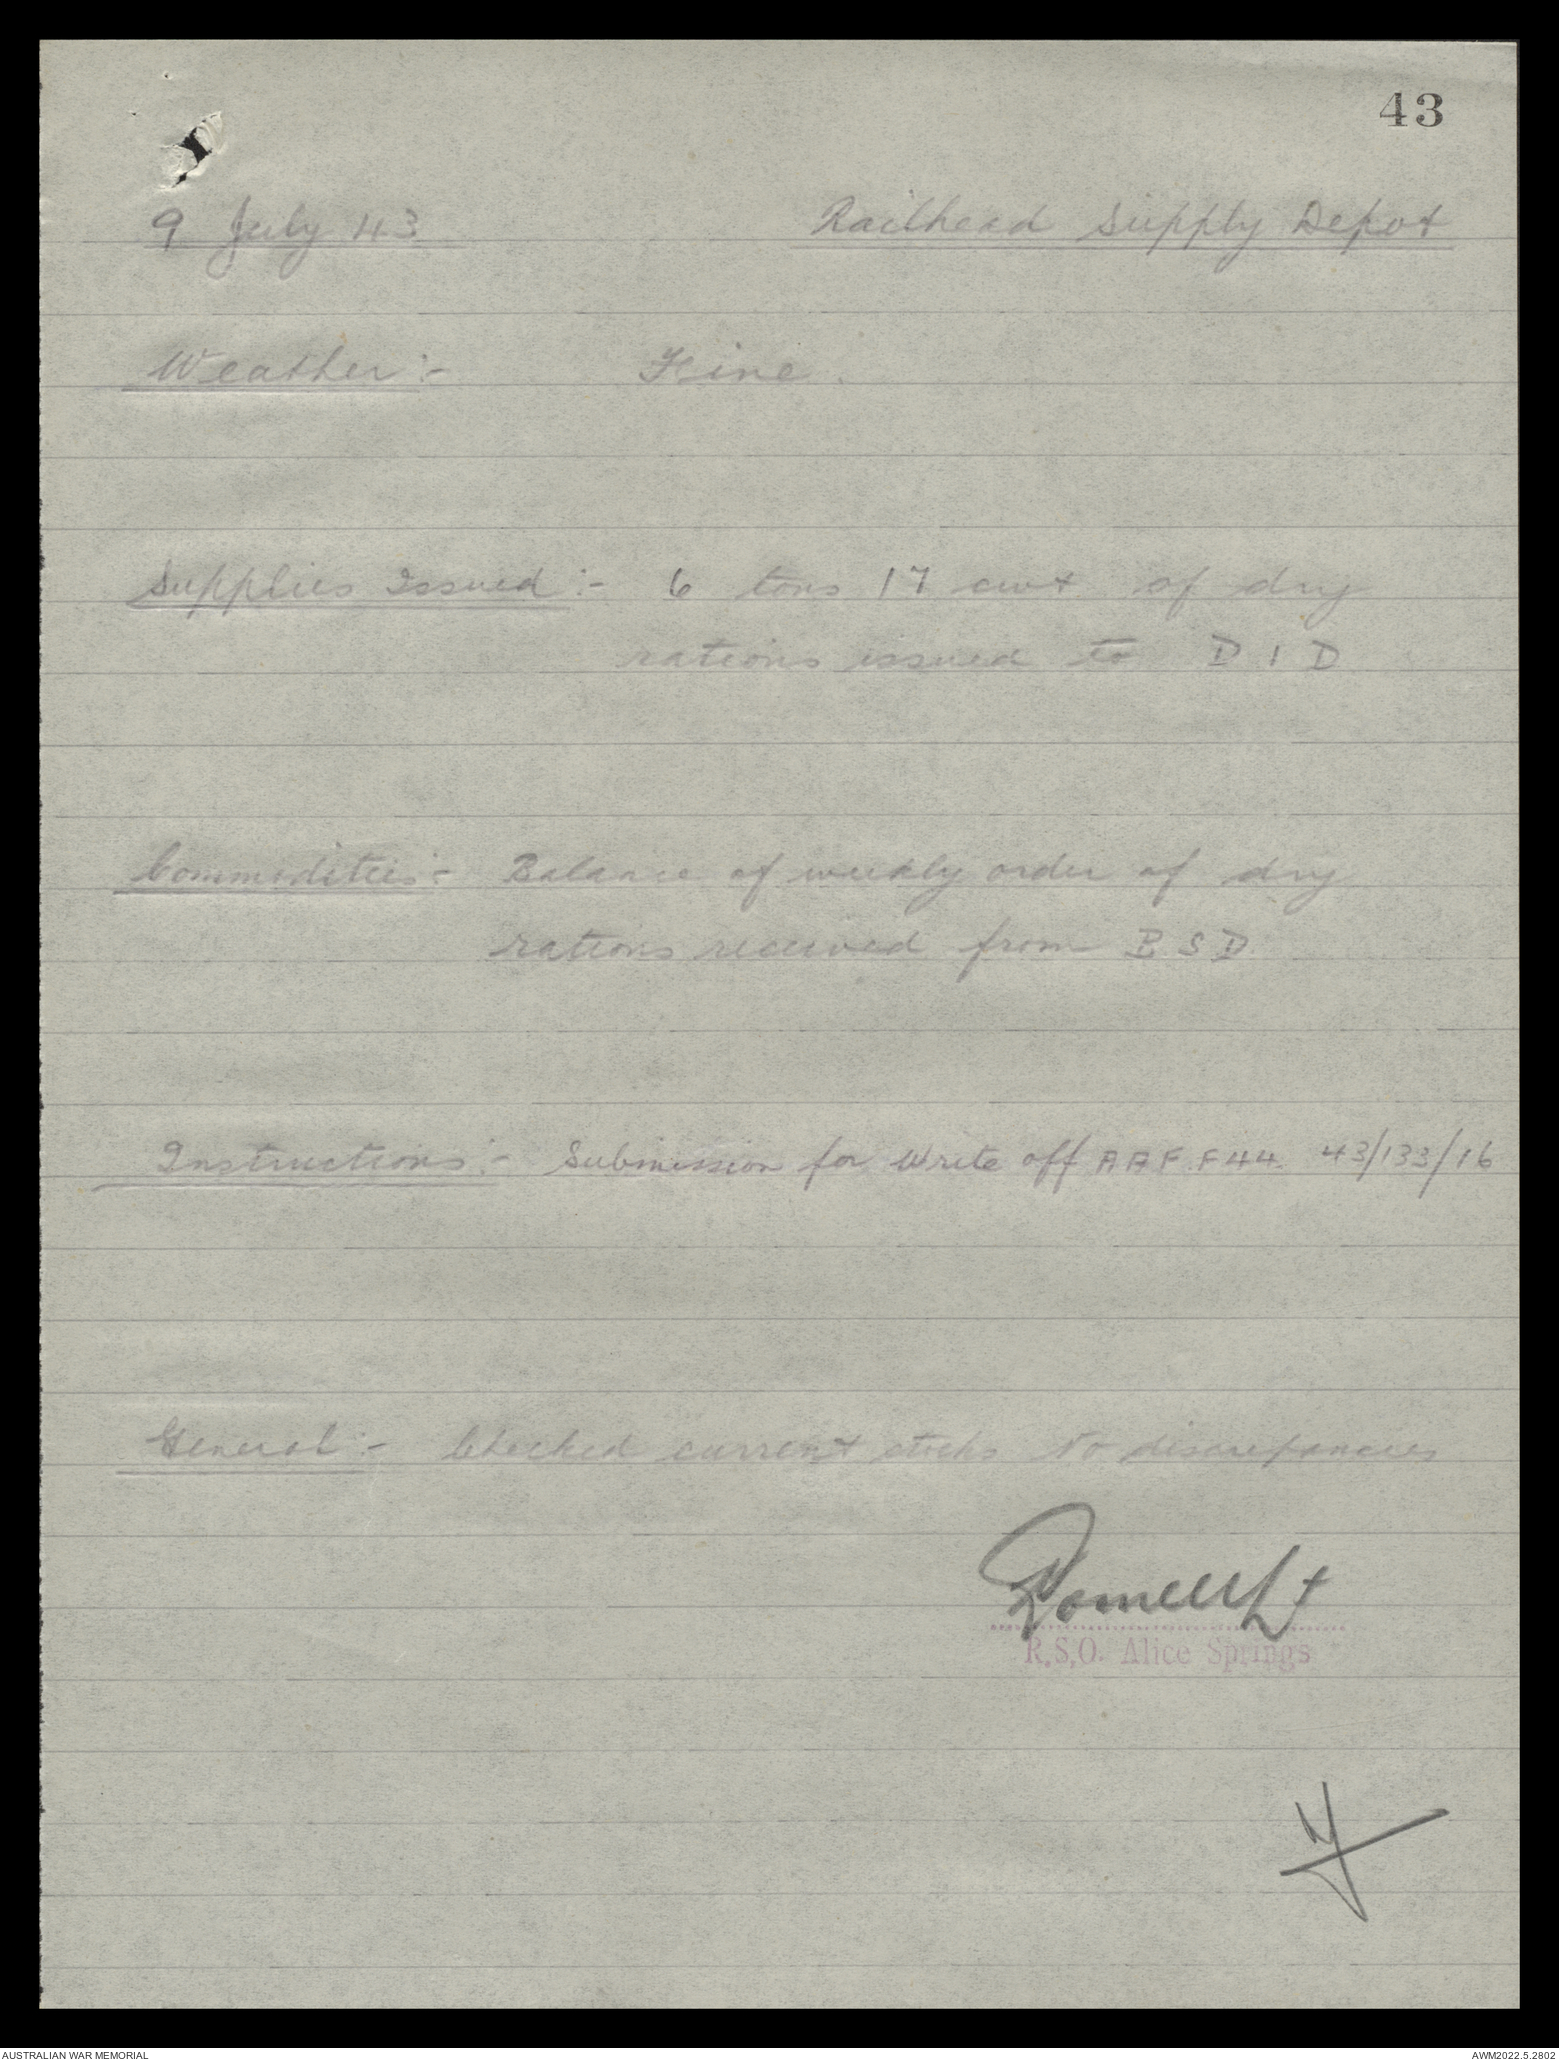 43
9 July 43 Railhead Supply Depot
Weather:- Fine.
Supplies Issued:- 6 tons 17 cwt of dry
rations issued to D I D
Commodities:- Balance of weekly order of dry
rations received from B.S.D.
Instructions:- Submission for Write off A A F. F44. 43/133/16
General:- Checked current stocks No discrepancies
Lt
R.S.O. Alice Springs
AUSTRALIAN WAR MEMORIAL AWM2022.5.2802